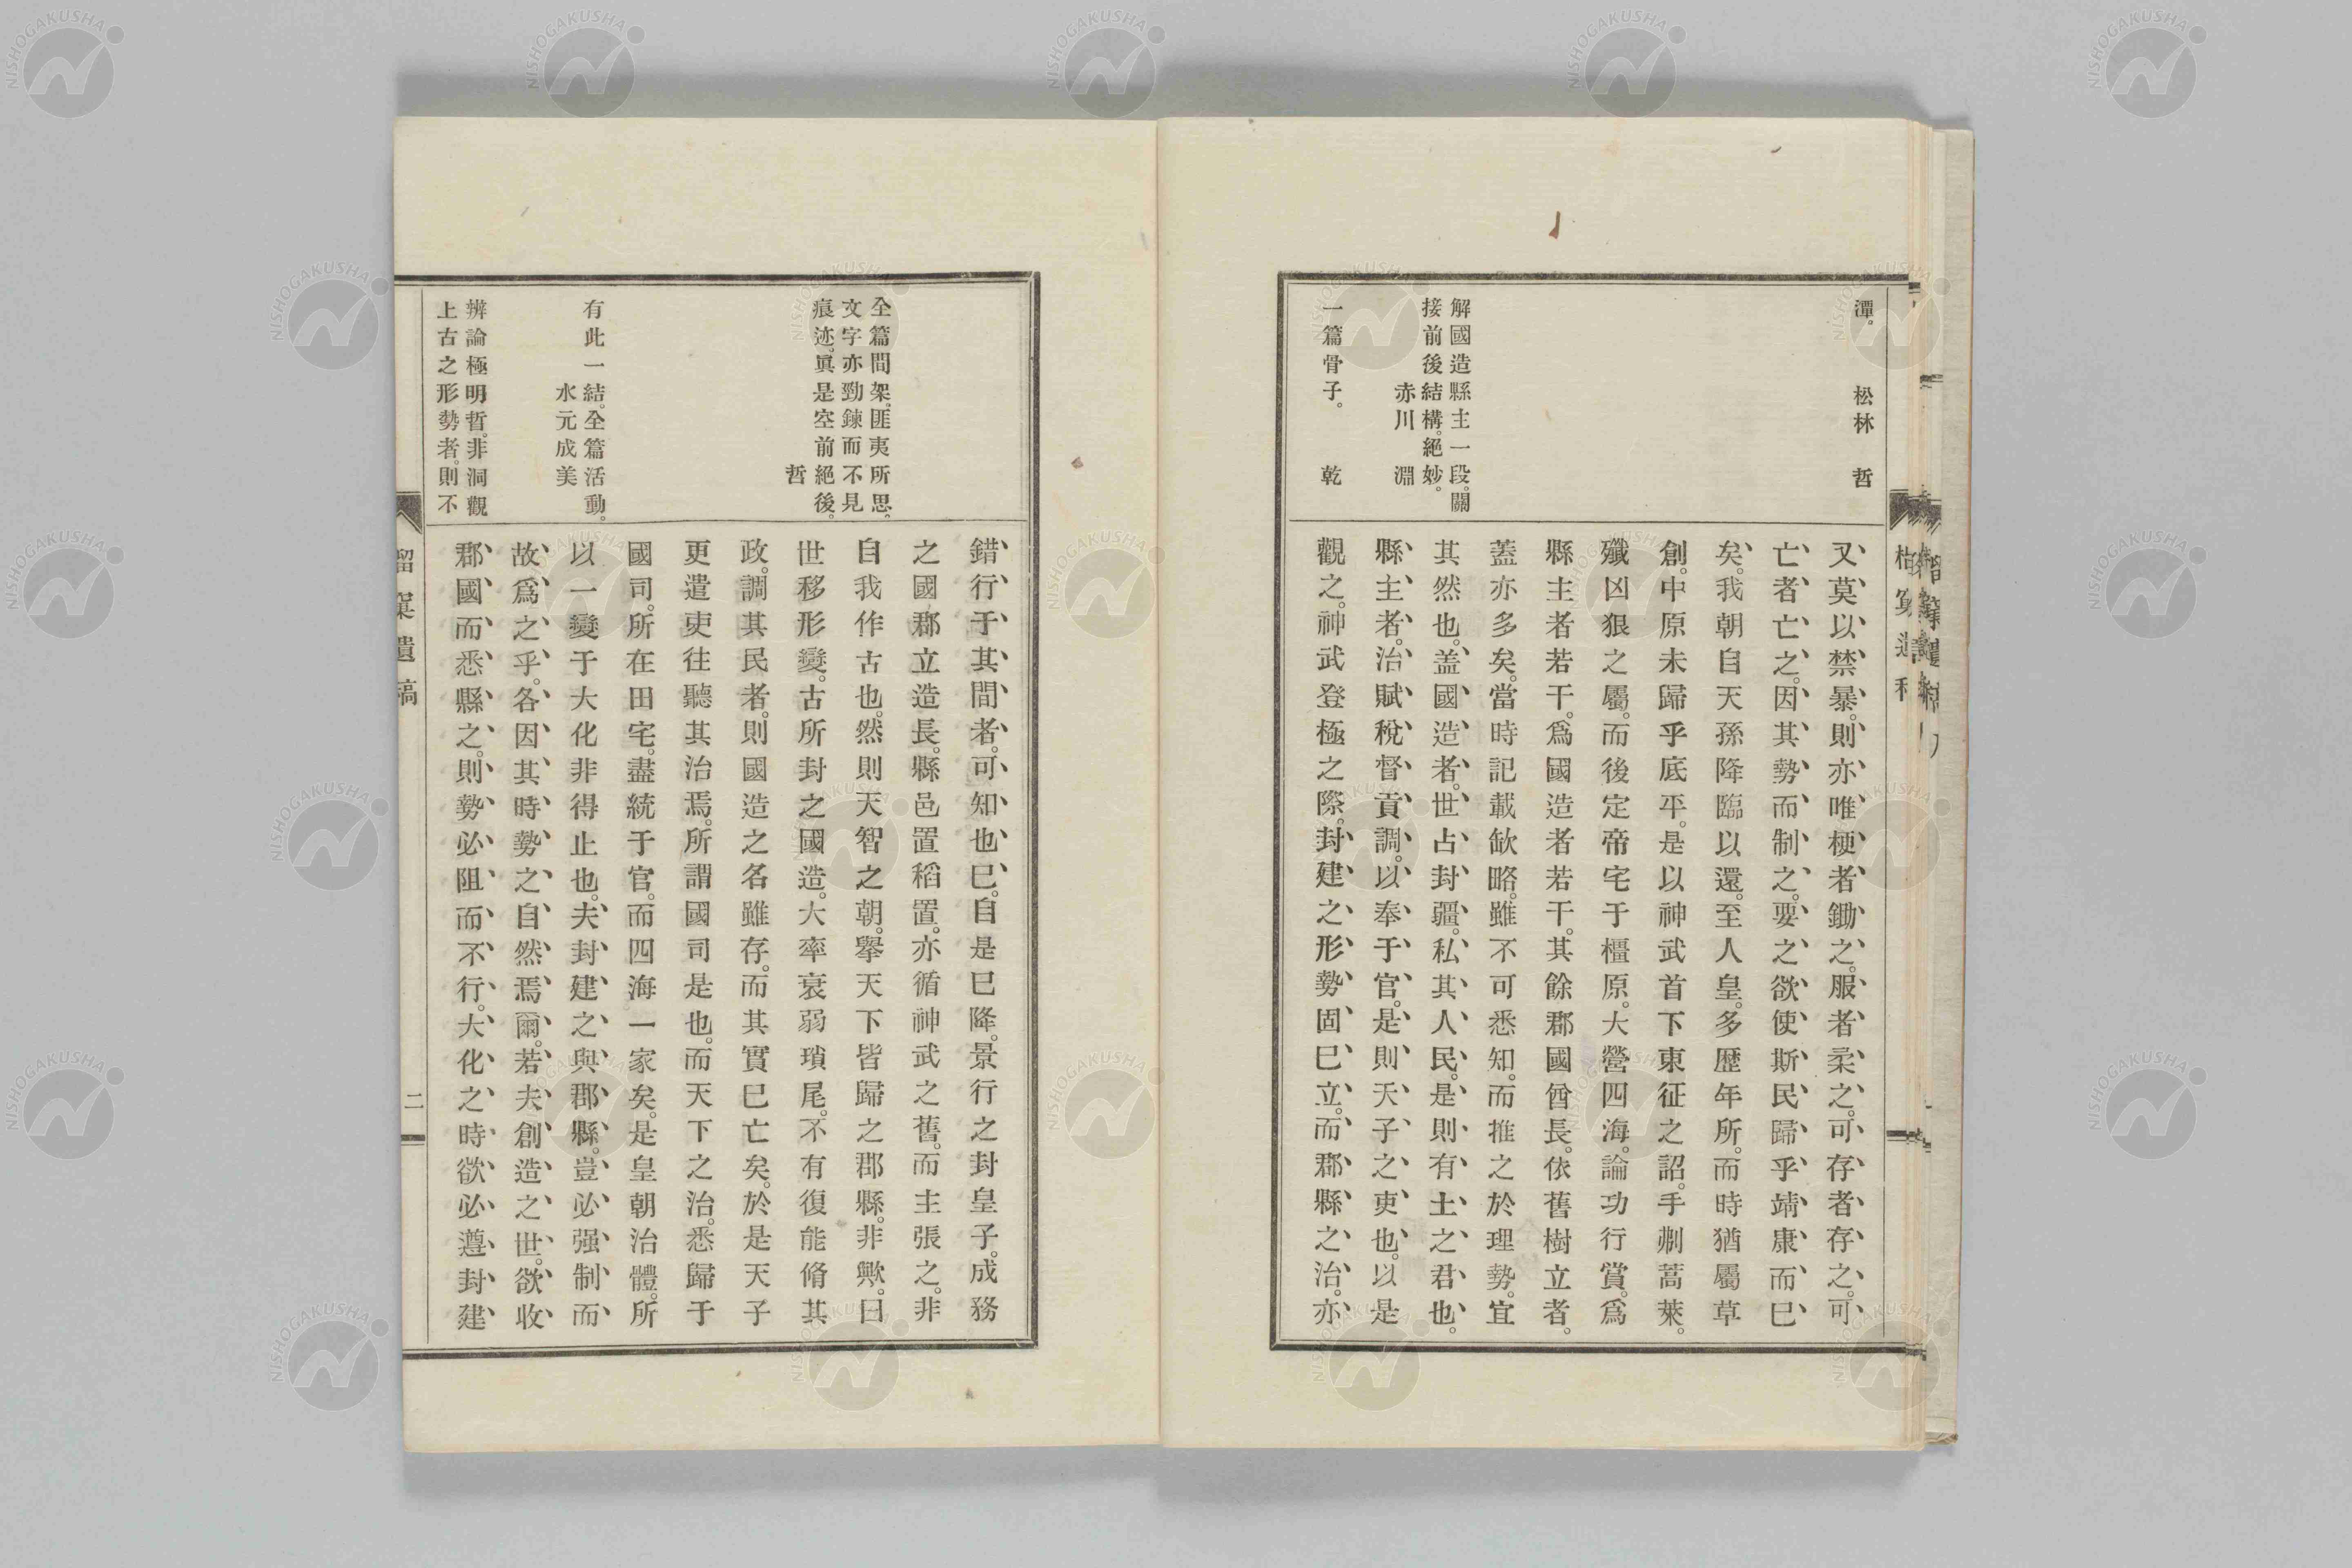 潭。
松林　哲
解國造縣主一段。關
接前後結構。絕妙。
赤川　淵
一篇骨子。　乾
又莫以禁暴。則亦唯梗者鋤之。服者柔之。可存者存之。可
亡者亡之。因其勢而制之。要之欲使斯民歸乎靖康而已
矣。我朝自天孫降臨以還。至人皇。多歷年所。而時猶屬草
創。中原未歸乎底平。是以神武首下東征之詔。手剗蒿萊。
殲凶狠之屬。而後定帝宅于橿原。大營四海。論功行賞。爲
縣主者若干。爲國造者若干。其餘郡國酋長。依舊樹立者。
蓋亦多矣。當時記載欽略。雖不可悉知。而推之於理勢。宜
其然也。盖國造者。世占封疆。私其人民。是則有土之君也。
縣主者。治賦稅督貢調。以奉于官。是則天子之吏也。以是
觀之。神武登極之際。封建之形勢固已立。而郡縣之治。亦
全篇間架。匪夷所思。
文字亦勁鍊而不見
痕迹。眞是空前絕後。
哲
有此一結。全篇活動。
水元成美
辨論極明哲。非洞觀
上古之形勢者。則不
錯行于其間者。可知也已。自是已降。景行之封皇子。成務
之國郡立造長。縣邑置稻置。亦循神武之舊。而主張之。非
自我作古也。然則天智之朝。擧天下皆歸之郡縣。非歟。曰
世移形變。古所封之國造。大率衰弱瑣尾。不有復能脩其
政。調其民者。則國造之名雖存。而其實已亡矣。於是天子
更遣吏往聽其治焉。所謂國司是也。而天下之治。悉歸于
國司。所在田宅。盡統于官。而四海一家矣。是皇朝治體。所
以一變于大化非得止也。夫封建之與郡縣。豈必强制而
故爲之乎。各因其時勢之自然焉爾。若夫創造之世。欲收
郡國而悉縣之。則勢必阻而不行。大化之時欲必遵封建
遺稿
二
NISHOGAKUSHA